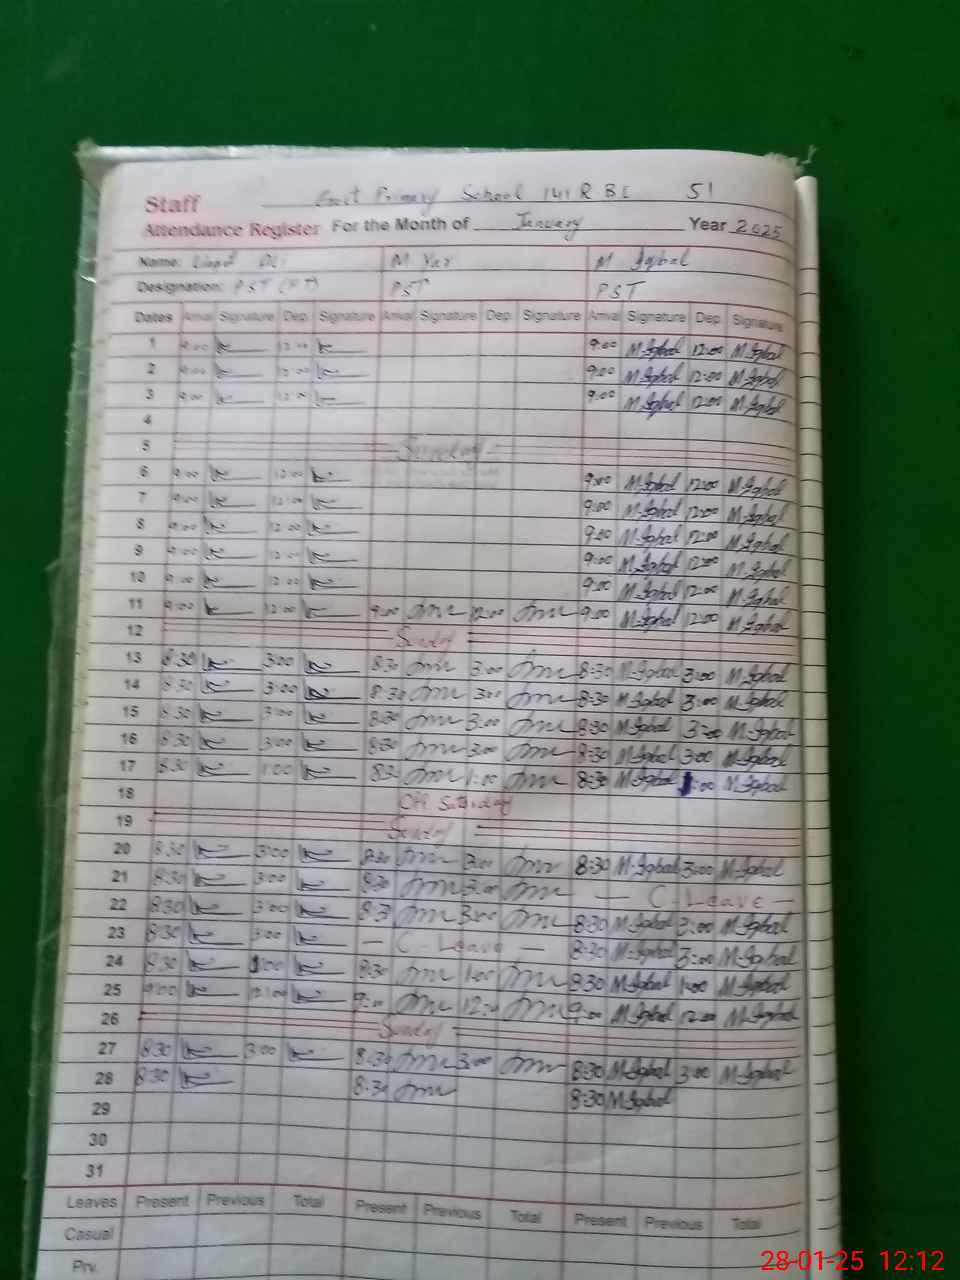 Staff Govt Primary School 141 R B C 51
Attendance Register For the Month of January Year 2025
Name: M Yar M Iqbal
Designation: PST PST PST
Dates Arrival Signature Dep. Signature Arrival Signature Dep. Signature Arrival Signature Dep. Signature
1 9:00 12:00 9:00 M.Iqbal 12:00 M.Iqbal
2 9:00 12:00 9:00 M.Iqbal 12:00 M.Iqbal
3 9:00 12:00 9:00 M.Iqbal 12:00 M.Iqbal
4
5 Sunday
6 9:00 12:00 9:00 M.Iqbal 12:00 M.Iqbal
7 9:00 12:00 9:00 M.Iqbal 12:00 M.Iqbal
8 9:00 12:00 9:00 M.Iqbal 12:00 M.Iqbal
9 9:00 12:00 9:00 M.Iqbal 12:00 M.Iqbal
10 9:00 12:00 9:00 M.Iqbal 12:00 M.Iqbal
11 9:00 12:00 9:00 12:00 9:00 M.Iqbal 12:00 M.Iqbal
12 Sunday
13 8:30 3:00 8:30 3:00 8:30 M.Iqbal 3:00 M.Iqbal
14 8:30 3:00 8:30 3:00 8:30 M.Iqbal 3:00 M.Iqbal
15 8:30 3:00 8:30 3:00 8:30 M.Iqbal 3:00 M.Iqbal
16 8:30 3:00 8:30 3:00 8:30 M.Iqbal 3:00 M.Iqbal
17 8:30 1:00 8:30 1:00 8:30 M.Iqbal 1:00 M.Iqbal
18 Off Saturday
19 Sunday
20 8:30 3:00 8:30 3:00 8:30 M.Iqbal 3:00 M.Iqbal
21 8:30 3:00 8:30 3:00 — C-Leave —
22 8:30 3:00 8:30 3:00 8:30 M.Iqbal 3:00 M.Iqbal
23 8:30 3:00 — C-Leave — 8:30 M.Iqbal 3:00 M.Iqbal
24 8:30 1:00 8:30 1:00 8:30 M.Iqbal 1:00 M.Iqbal
25 9:00 12:00 9:00 12:00 9:00 M.Iqbal 12:00 M.Iqbal
26 Sunday
27 8:30 3:00 8:30 3:00 8:30 M.Iqbal 3:00 M.Iqbal
28 8:30 8:30 8:30 M.Iqbal
29
30
31
Leaves Present Previous Total Present Previous Total Present Previous Total
Casual
Prv.
28-01-25 12:12